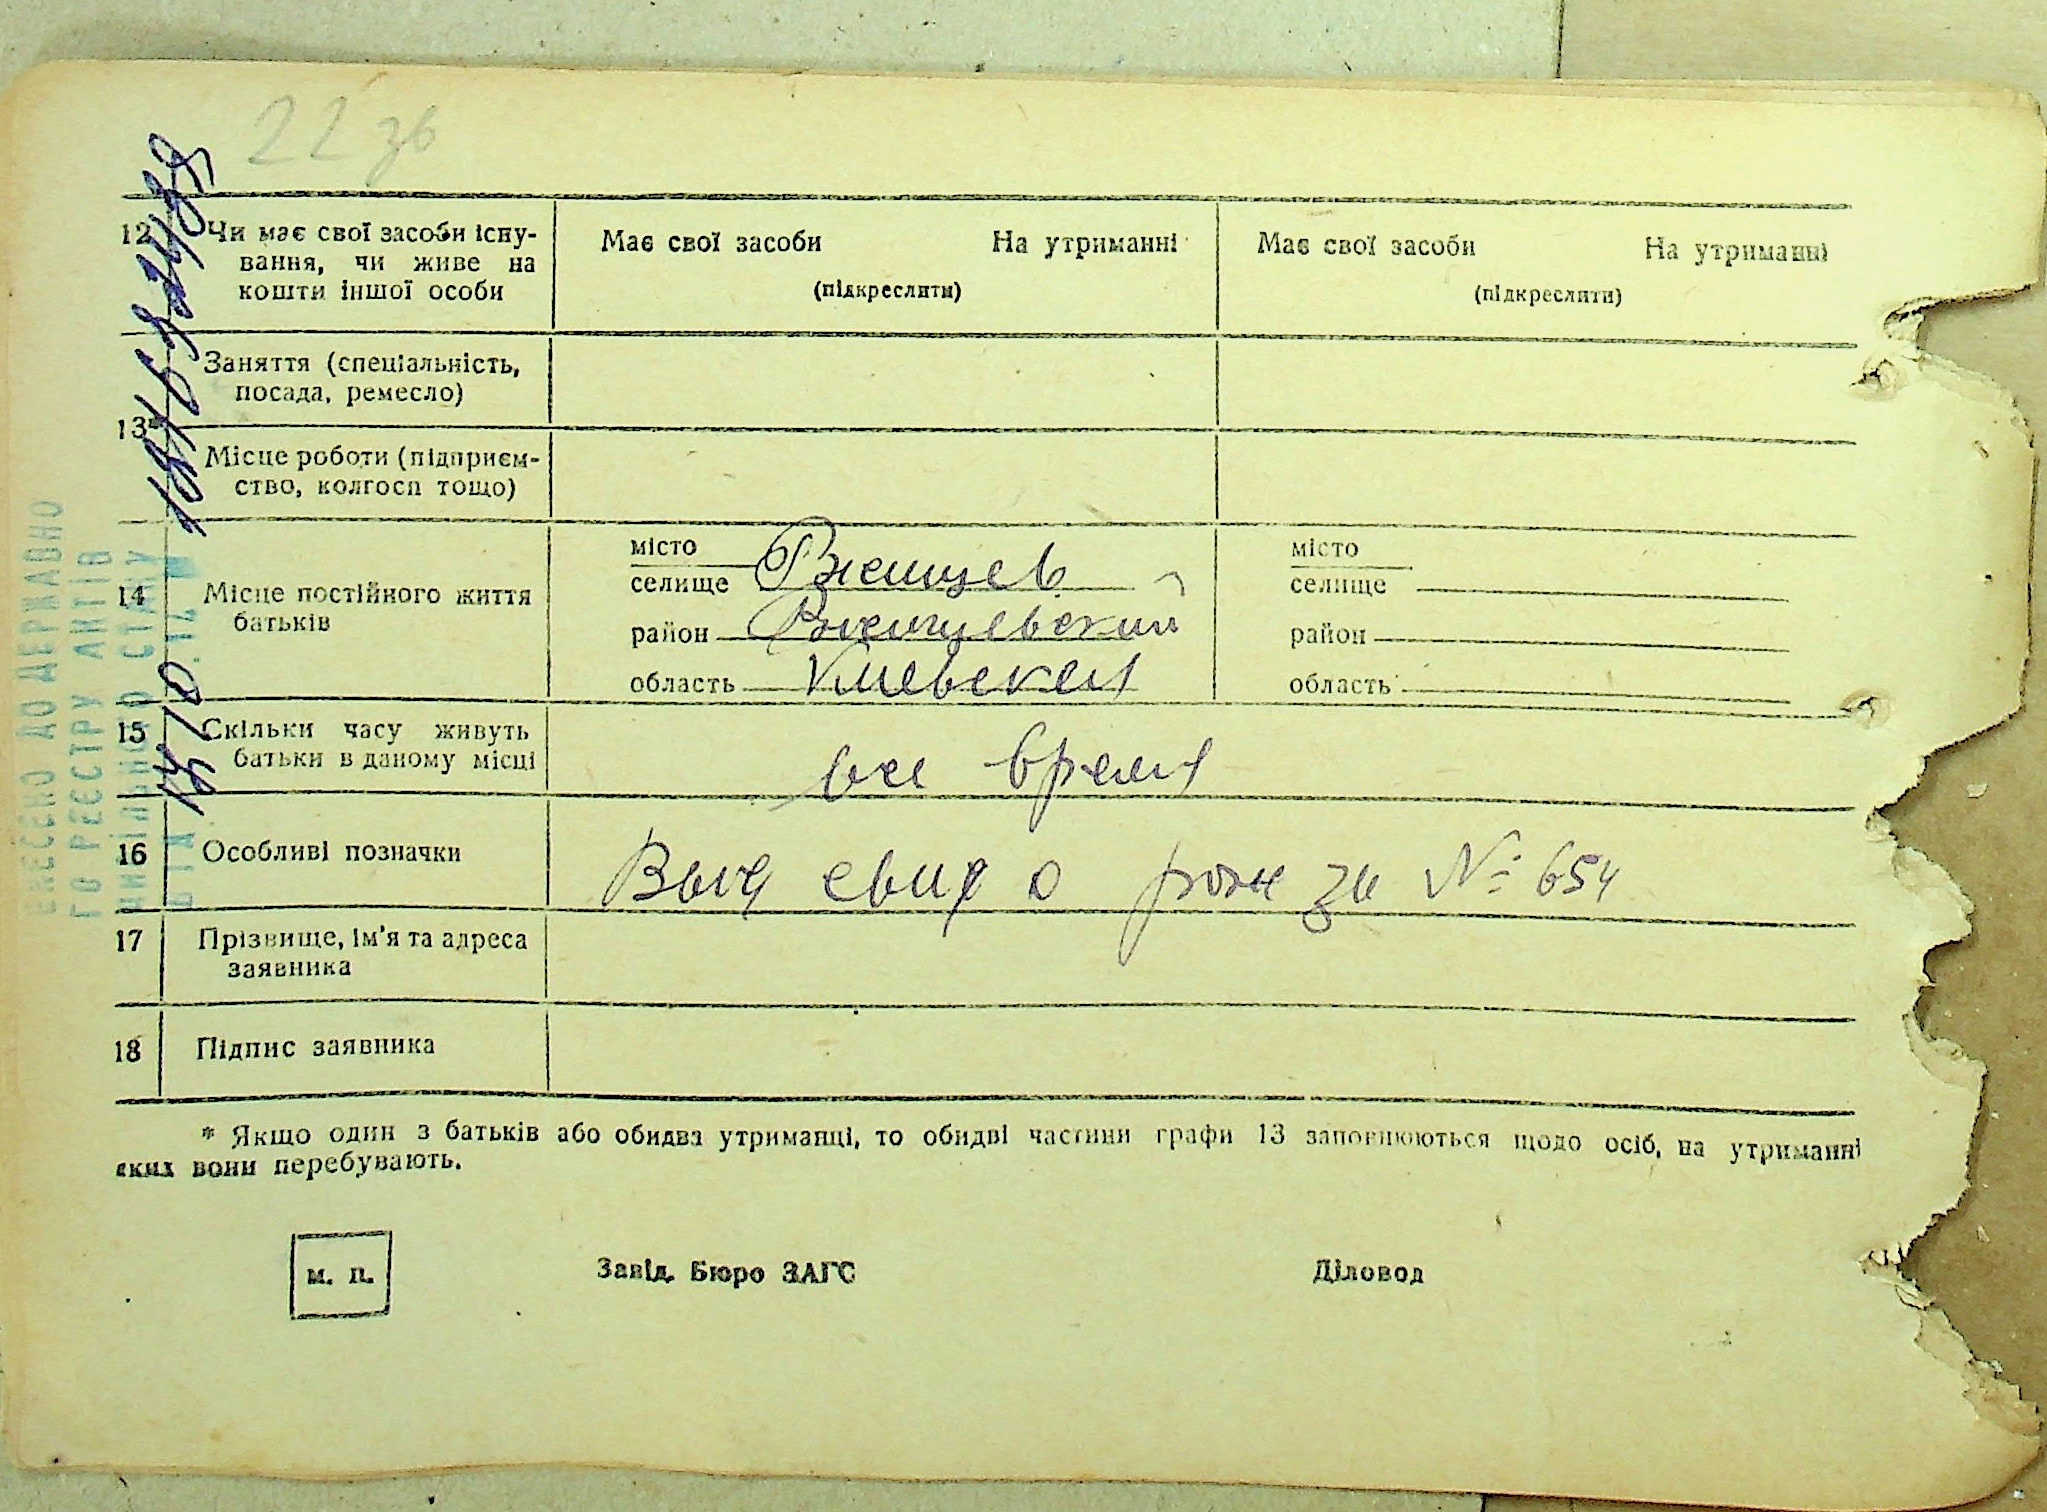 22 зв
12 Чи має свої засоби існу-
вання, чи живе на
кошти іншої особи
Має свої засоби На утриманні
(підкреслити)
Має свої засоби На утриманні
(підкреслити)
13*
Заняття (спеціальність,
посада, ремесло)
Місце роботи (підприєм-
ство, колгосп тощо)
14 Місце постійного життя
батьків
місто
селище Ржищев
район Ржищевский
область Киевская
місто
селище
район
область
15 Скільки часу живуть
батьки в даному місці
все время
16 Особливі позначки
Выд свид о рож за № 654
17 Прізвище, ім'я та адреса
заявника
18 Підпис заявника
* Якщо один з батьків або обидва утриманці, то обидві частини графи 13 заповнюються щодо осіб, на утриманні
яких вони перебувають.
м. п.
Завід. Бюро ЗАГС
Діловод
ВНЕСЕНО ДО ДЕРЖАВНО
ГО РЕЄСТРУ АКТІВ
ЦИВІЛЬНОГО СТАНУ